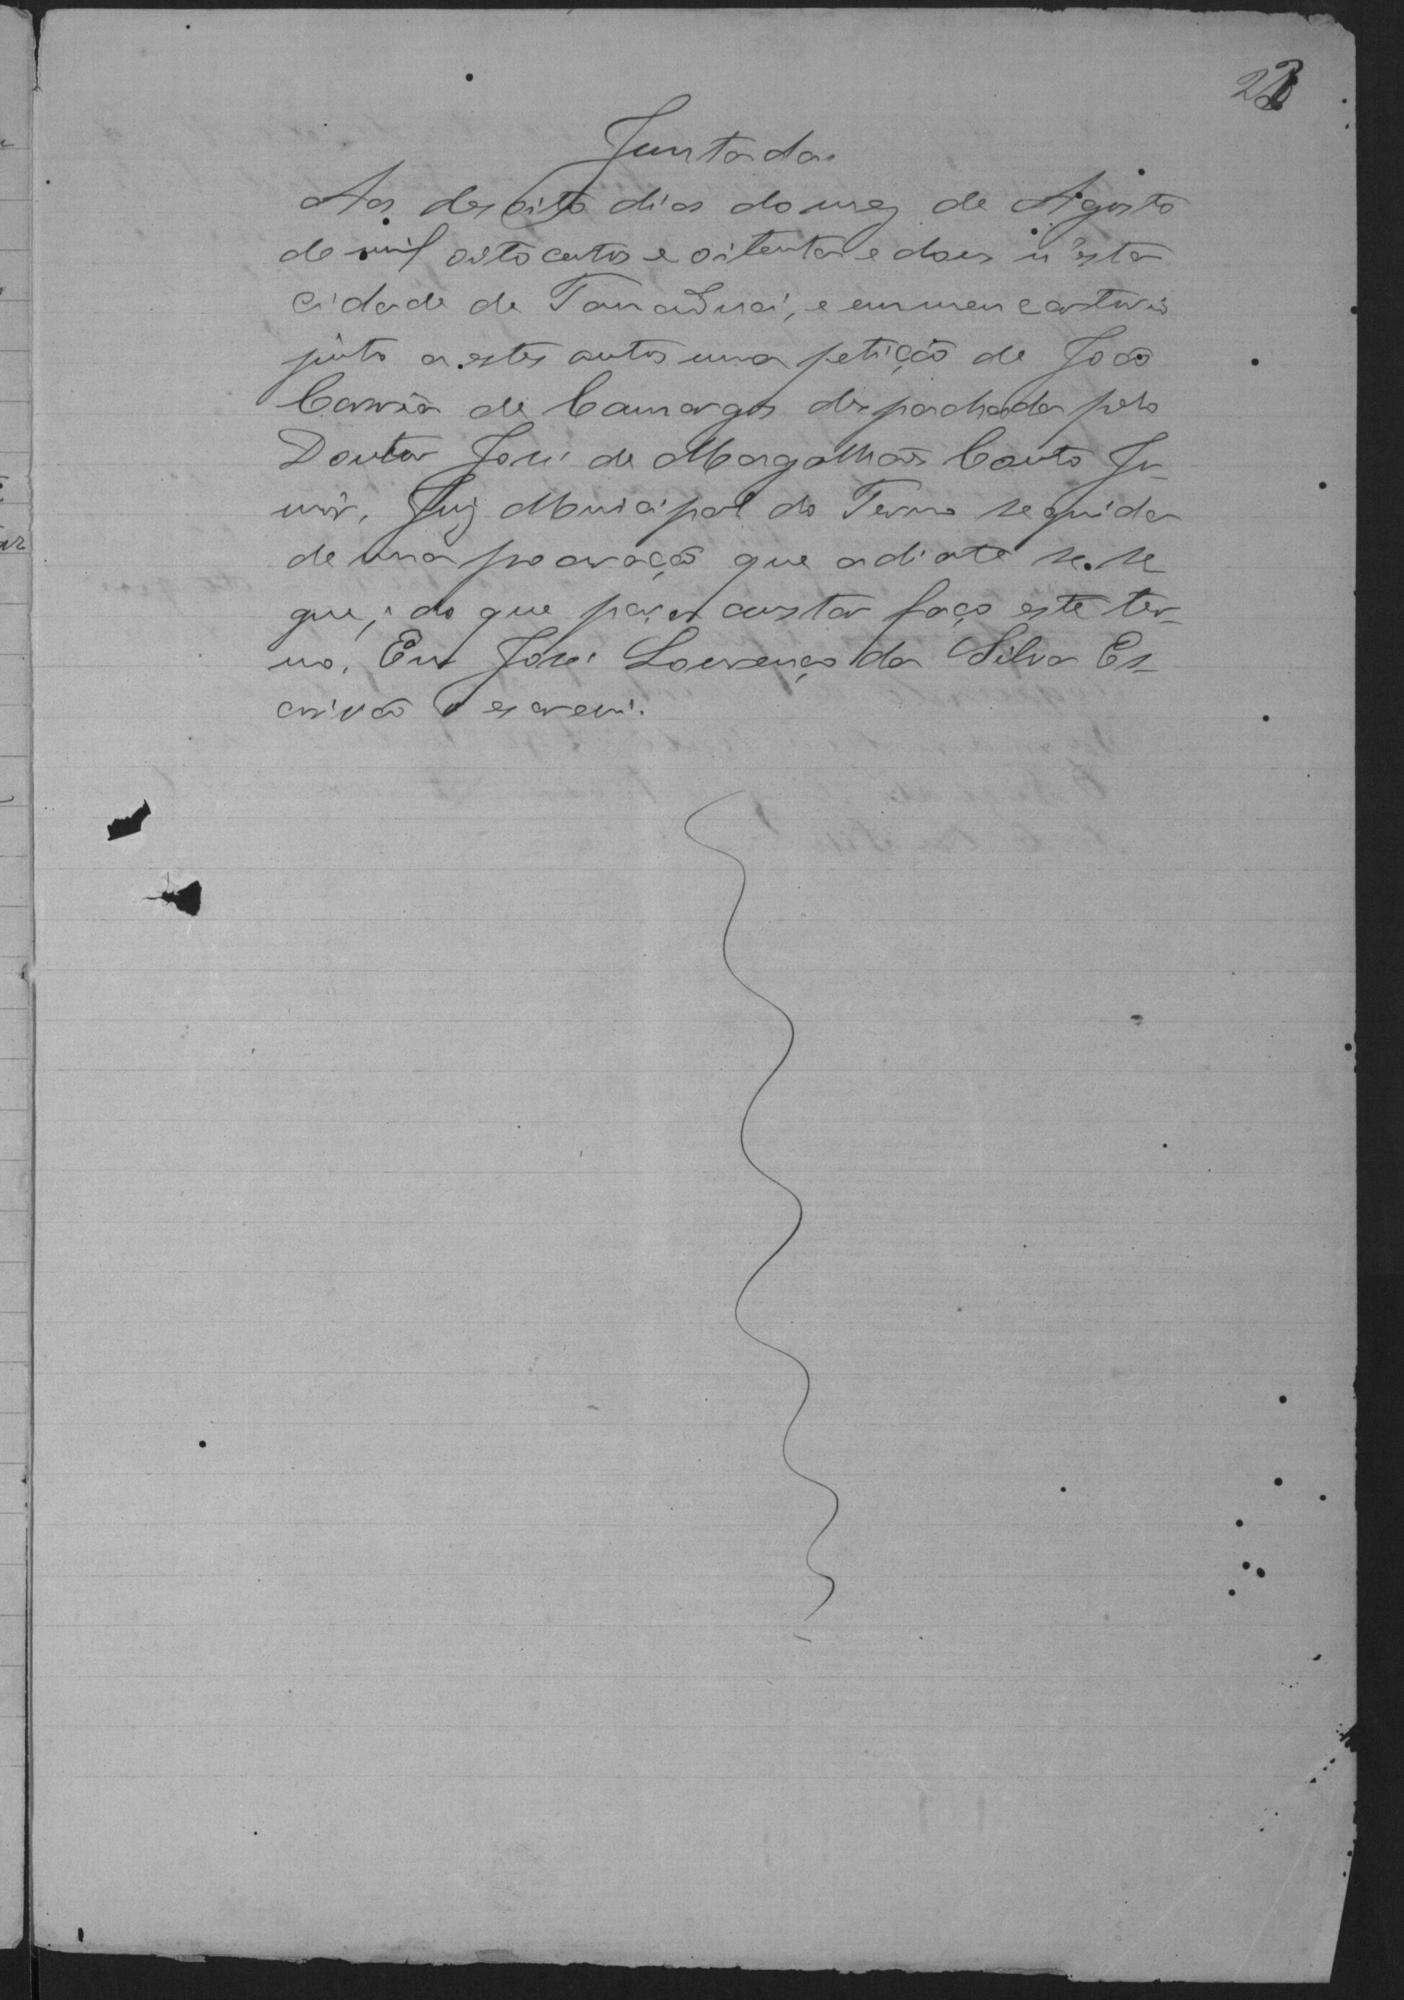 23
Juntada
Aos desoito dias do mez de Agosto
de mil oitocentos e oitenta e dous n'esta
cidade de e em meu cartorio
junto a estes autos uma petição de João
Corrêa de Camargo despachada pelo
Doutor José de Magalhães Couto Ju-
nior, Juiz Municipal do Termo seguida
de uma procuração que adiante se se
gue; do que para constar faço este ter-
mo. Eu José Lourenço da Silva Es-
crivão o escrevi.